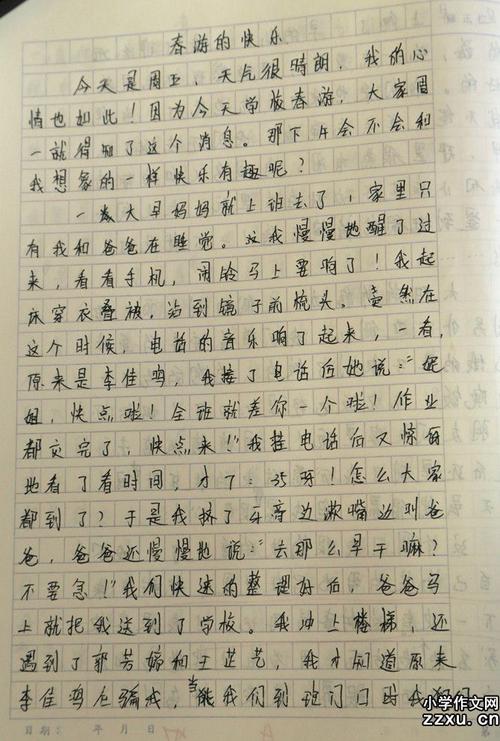 春游的快乐
今天是周五，天气很晴朗，我的心
情也如此！因为今天学校春游，大家周
一就得知了这个消息。那下午会不会和
我想象的一样快乐有趣呢？
一大早妈妈就上班去了，家里只
有我和爸爸在睡觉。我慢慢地醒了过
来，看看手机，闹铃马上要响了！我起
床穿衣叠被，站到镜子前梳头。竟然在
这个时候，电话的音乐响了起来，一看，
原来是李佳鸣，我接了电话后她说：“姐
姐，快点啦！全班就差你一个啦！作业
都交完了，快点来！”我挂电话后又惊讶
地看了看时间，才7：35呀！怎么大家
都到了？于是我挤了牙膏边漱嘴边叫爸
爸，爸爸还慢慢地说：“去那么早干嘛？
不要急！”我们快速的整理好后，爸爸马
上就把我送到了学校。我冲上楼梯，还
遇到了郭芳婷和王芷艺，我才知道原来
李佳鸣在骗我，等我们到班门口时我们
日期：　年　月　日
小学作文网
zzxu.cn